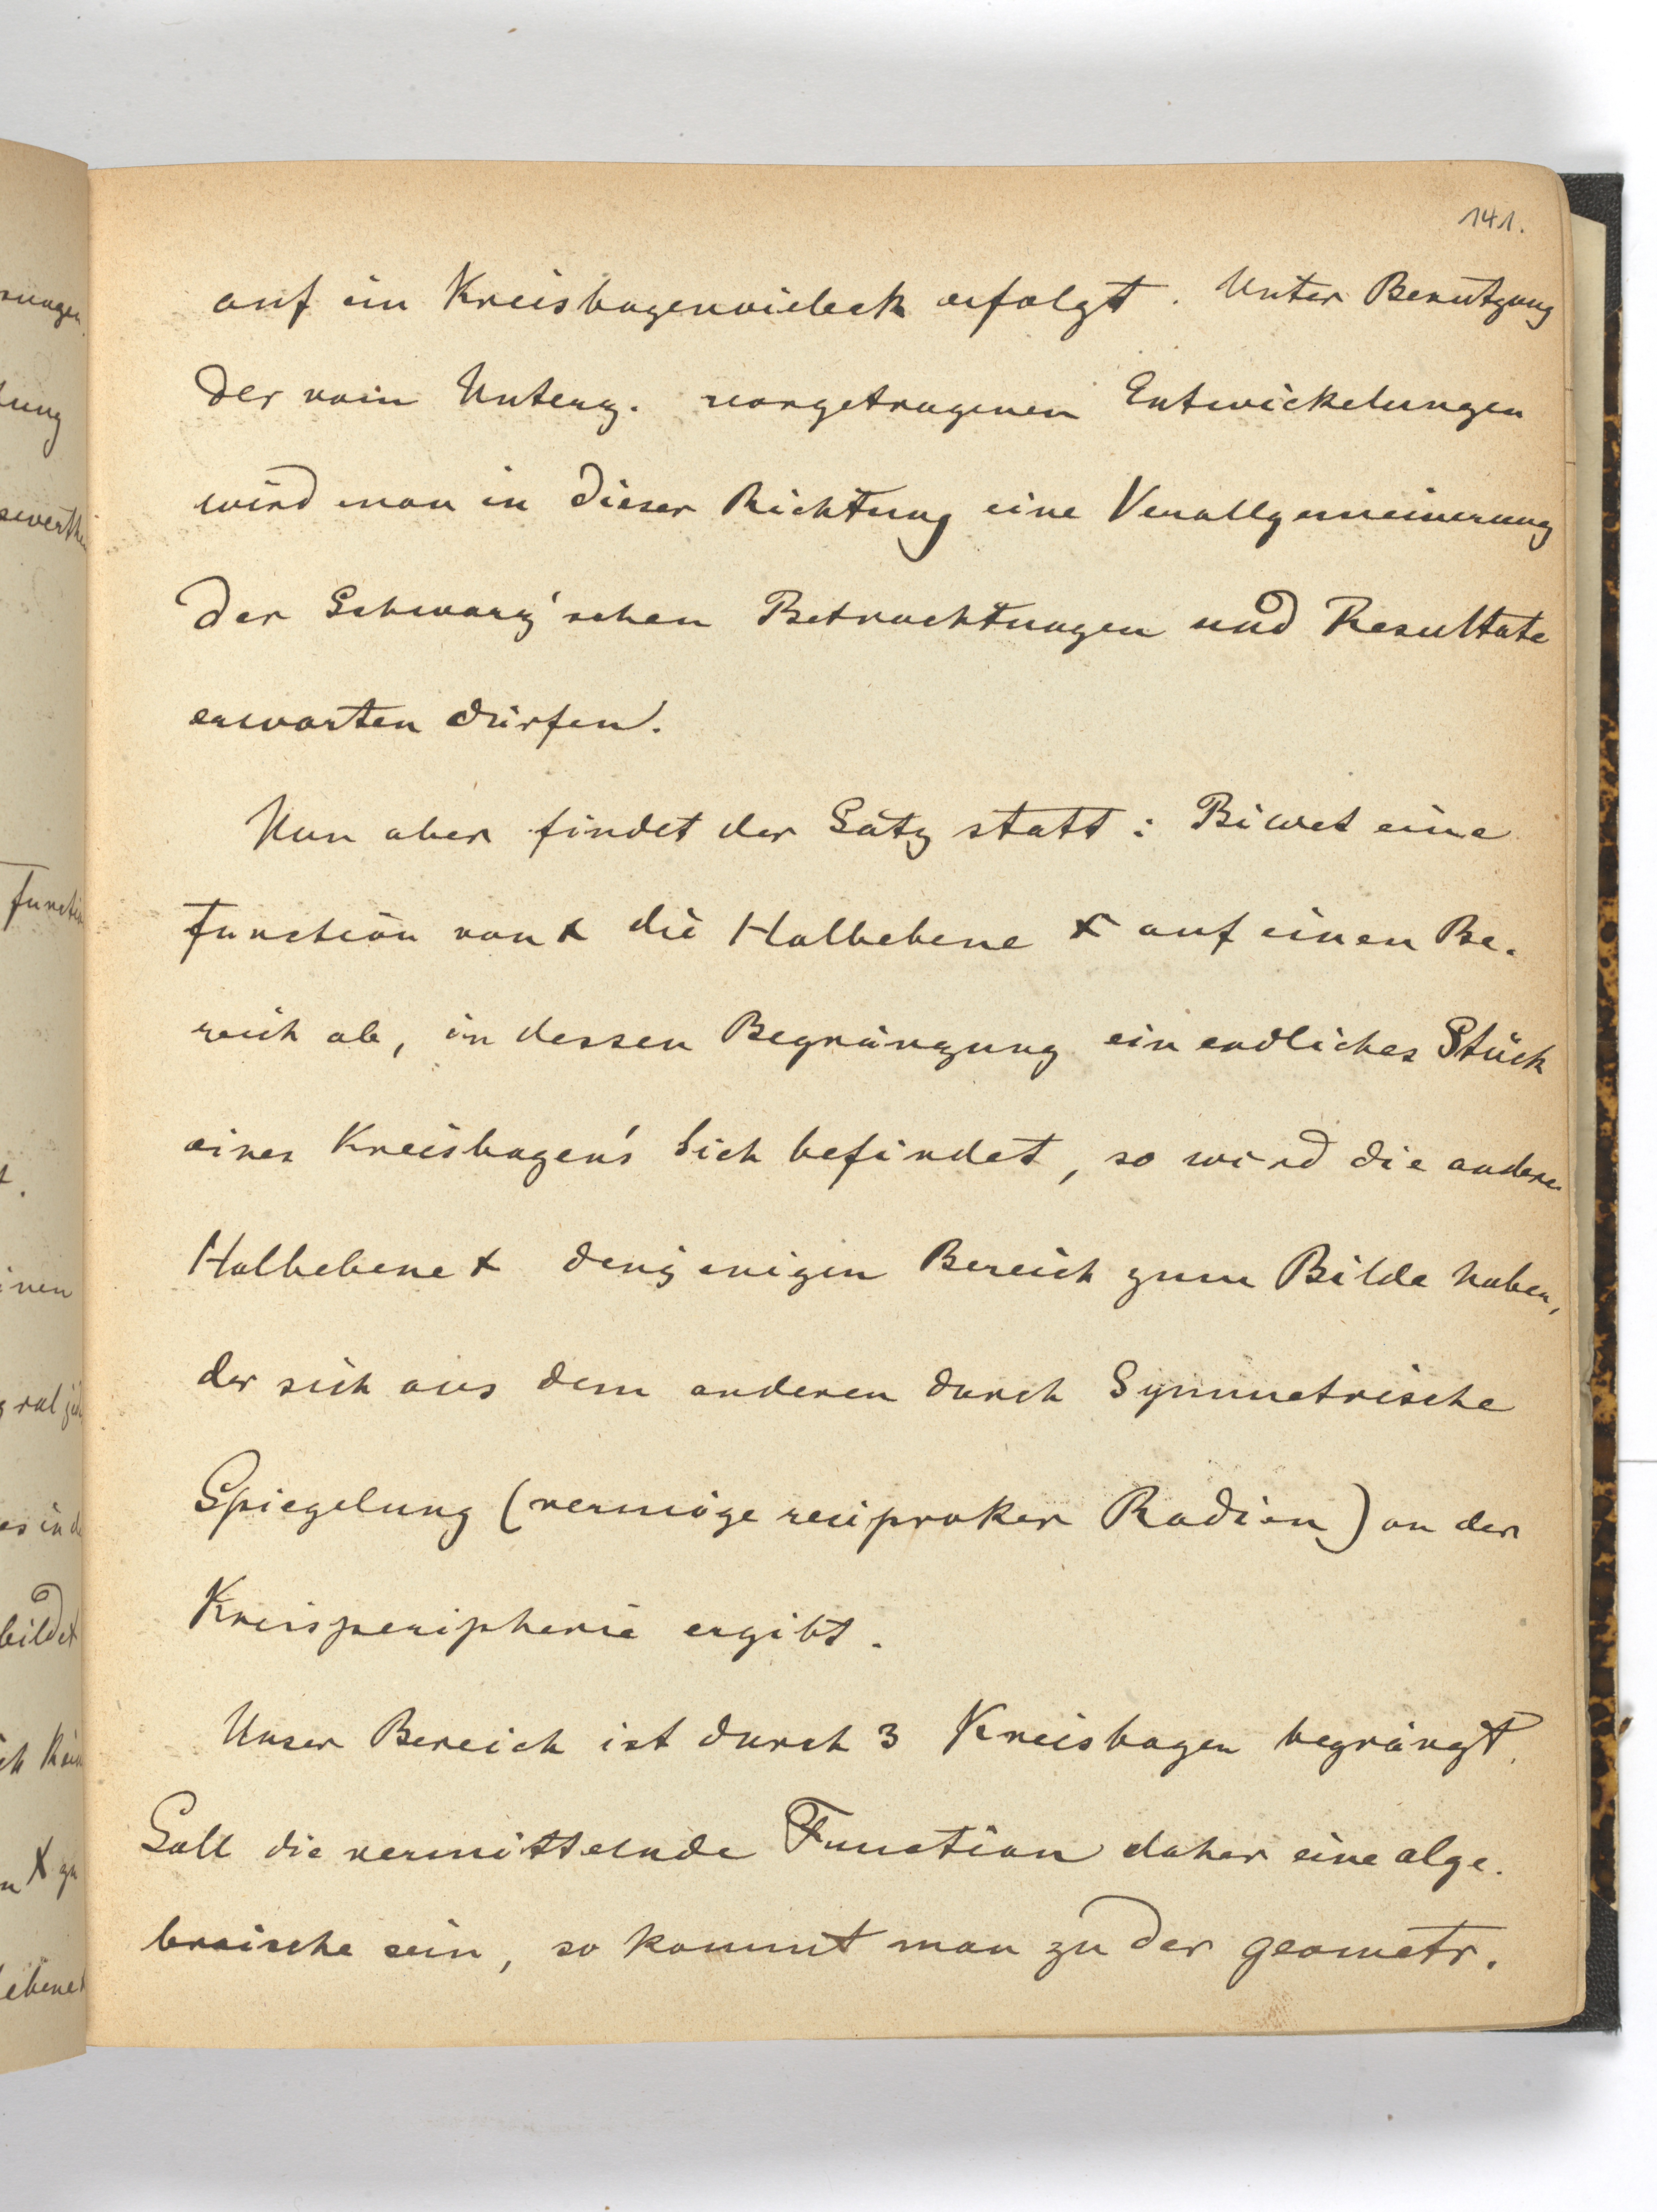 141.
auf ein Kreisbogenvieleck erfolgt. Unter Benutzung
der vom Unterz. vorgetragenen Entwickelungen
wird man in dieser Richtung eine Verallgemeinerung
der Schwarz'schen Betrachtungen und Resultate
erwarten dürfen.
Nun aber findet der Satz statt: Bildet eine
Function von x die Halbebene x auf einen Be-
reich ab, in dessen Begränzung ein endliches Stück
eines Kreisbogens sich befindet, so wird die andere
Halbebene x denjenigen Bereich zum Bilde haben,
der sich aus dem anderen durch Symmetrische
Spiegelung (vermöge reciproker Radien) an der
Kreisperipherie ergibt.
Unser Bereich ist durch 3 Kreisbogen begränzt.
Soll die vermittelnde Function daher eine alge-
braische sein, so kommt man zu der geometr.